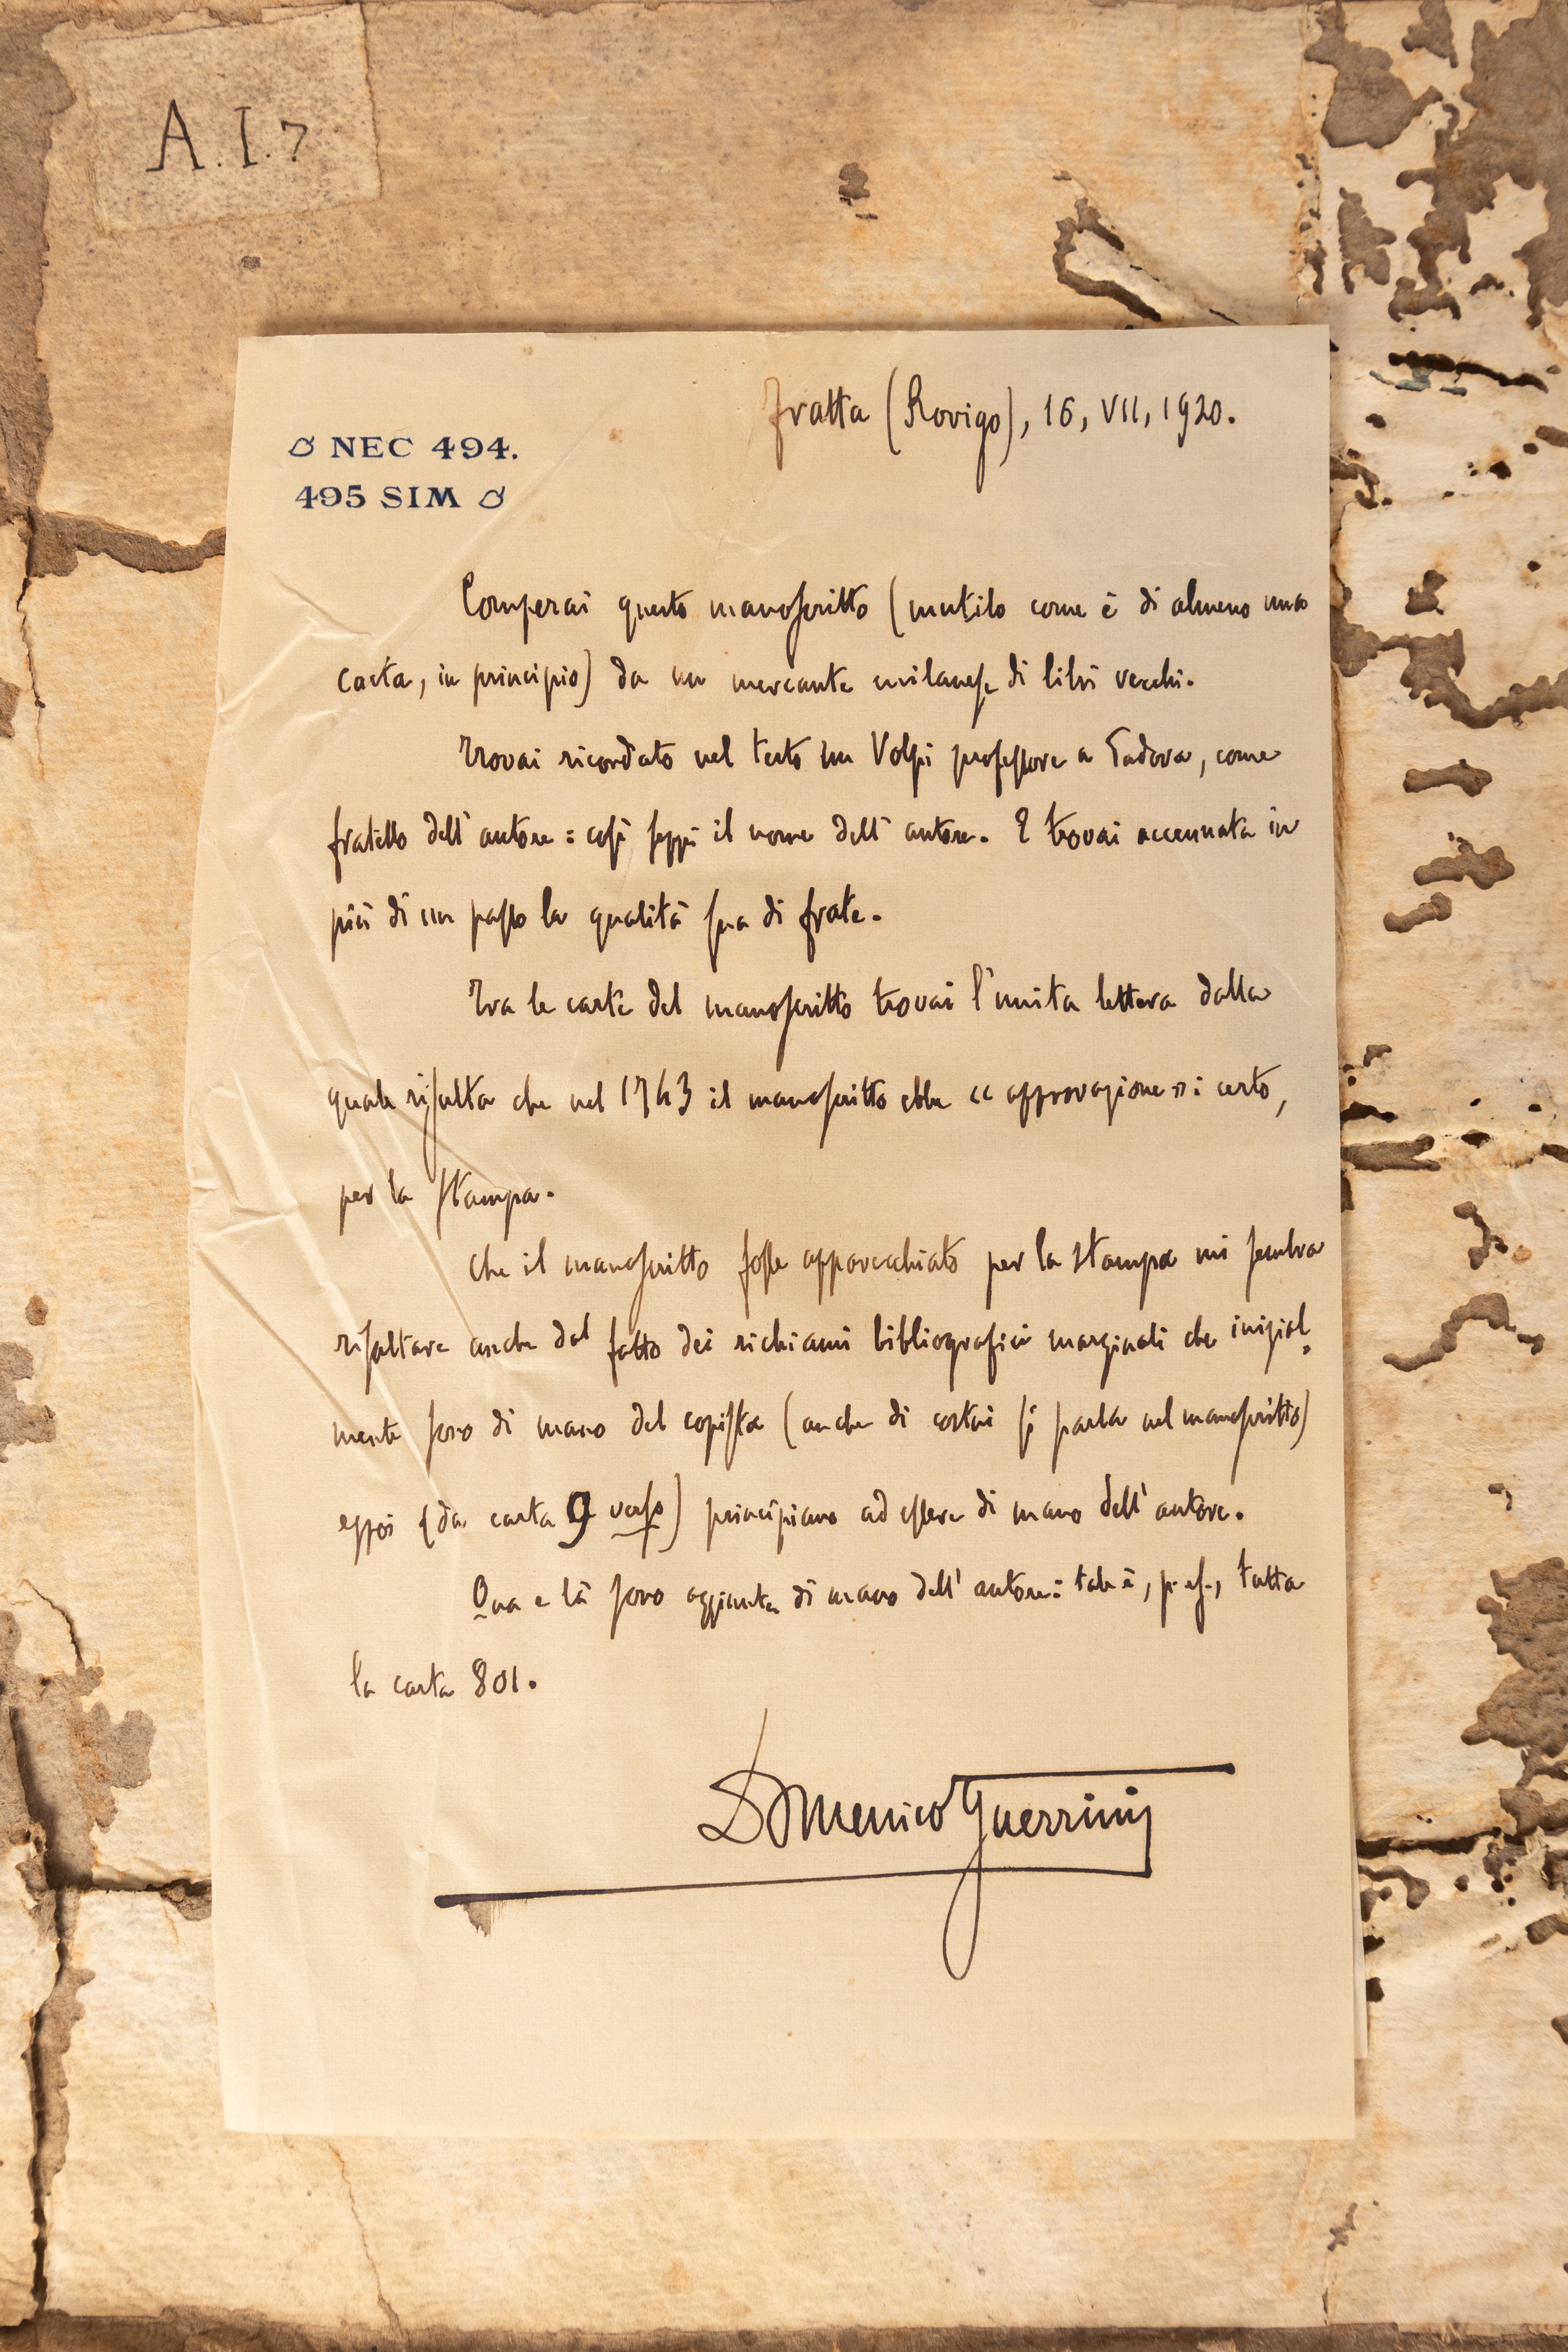 A.I.7
Fratta (Rovigo), 16, VII, 1920.
NEC 494.
495 SIM
Comperai questo manoscritto (mutilo come è di almeno una
carta, in principio) da un mercante milanese di libri vecchi.
Trovai ricordato nel testo un Volpi professore a Padova, come
fratello dell'autore: così seppi il nome dell'autore. E trovai accennata in
più di un passo la qualità sua di frate.
Tra le carte del manoscritto trovai l'unita lettera dalla
quale risulta che nel 1743 il manoscritto ebbe «approvazione»: certo,
per la stampa.
Che il manoscritto fosse apparecchiato per la stampa mi sembra
risultare anche dal fatto dei richiami bibliografici marginali che inizial-
mente sono di mano del copista (anche di costui si parla nel manoscritto)
e poi (da carta 9 verso) principiano ad essere di mano dell'autore.
Qua e là sono aggiunte di mano dell'autore: tale è, p. es., tutta
la carta 801.
Domenico Guerrini